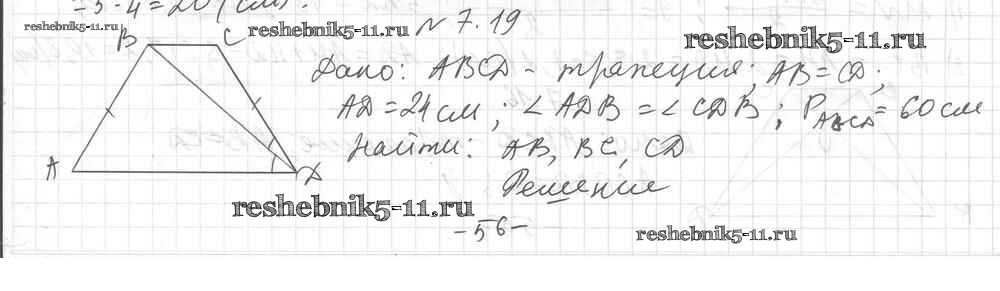 -5·4=20 (см).
reshebnik5-11.ru
reshebnik5-11.ru № 7.19
reshebnik5-11.ru
B C
Дано: ABCD - трапеция; AB = CD;
AD = 24 см; ∠ADB = ∠CDB; P_ABCD = 60 см
Найти: AB, BC, CD
A D
Решение
reshebnik5-11.ru
-56-
reshebnik5-11.ru